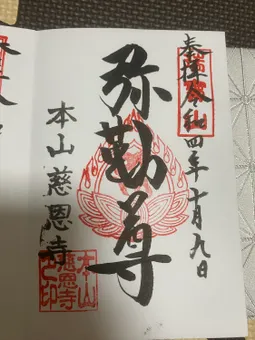 奉拝 令和四年十月九日
瑞寶山
弥勒尊
本山慈恩寺
本山慈恩寺之印